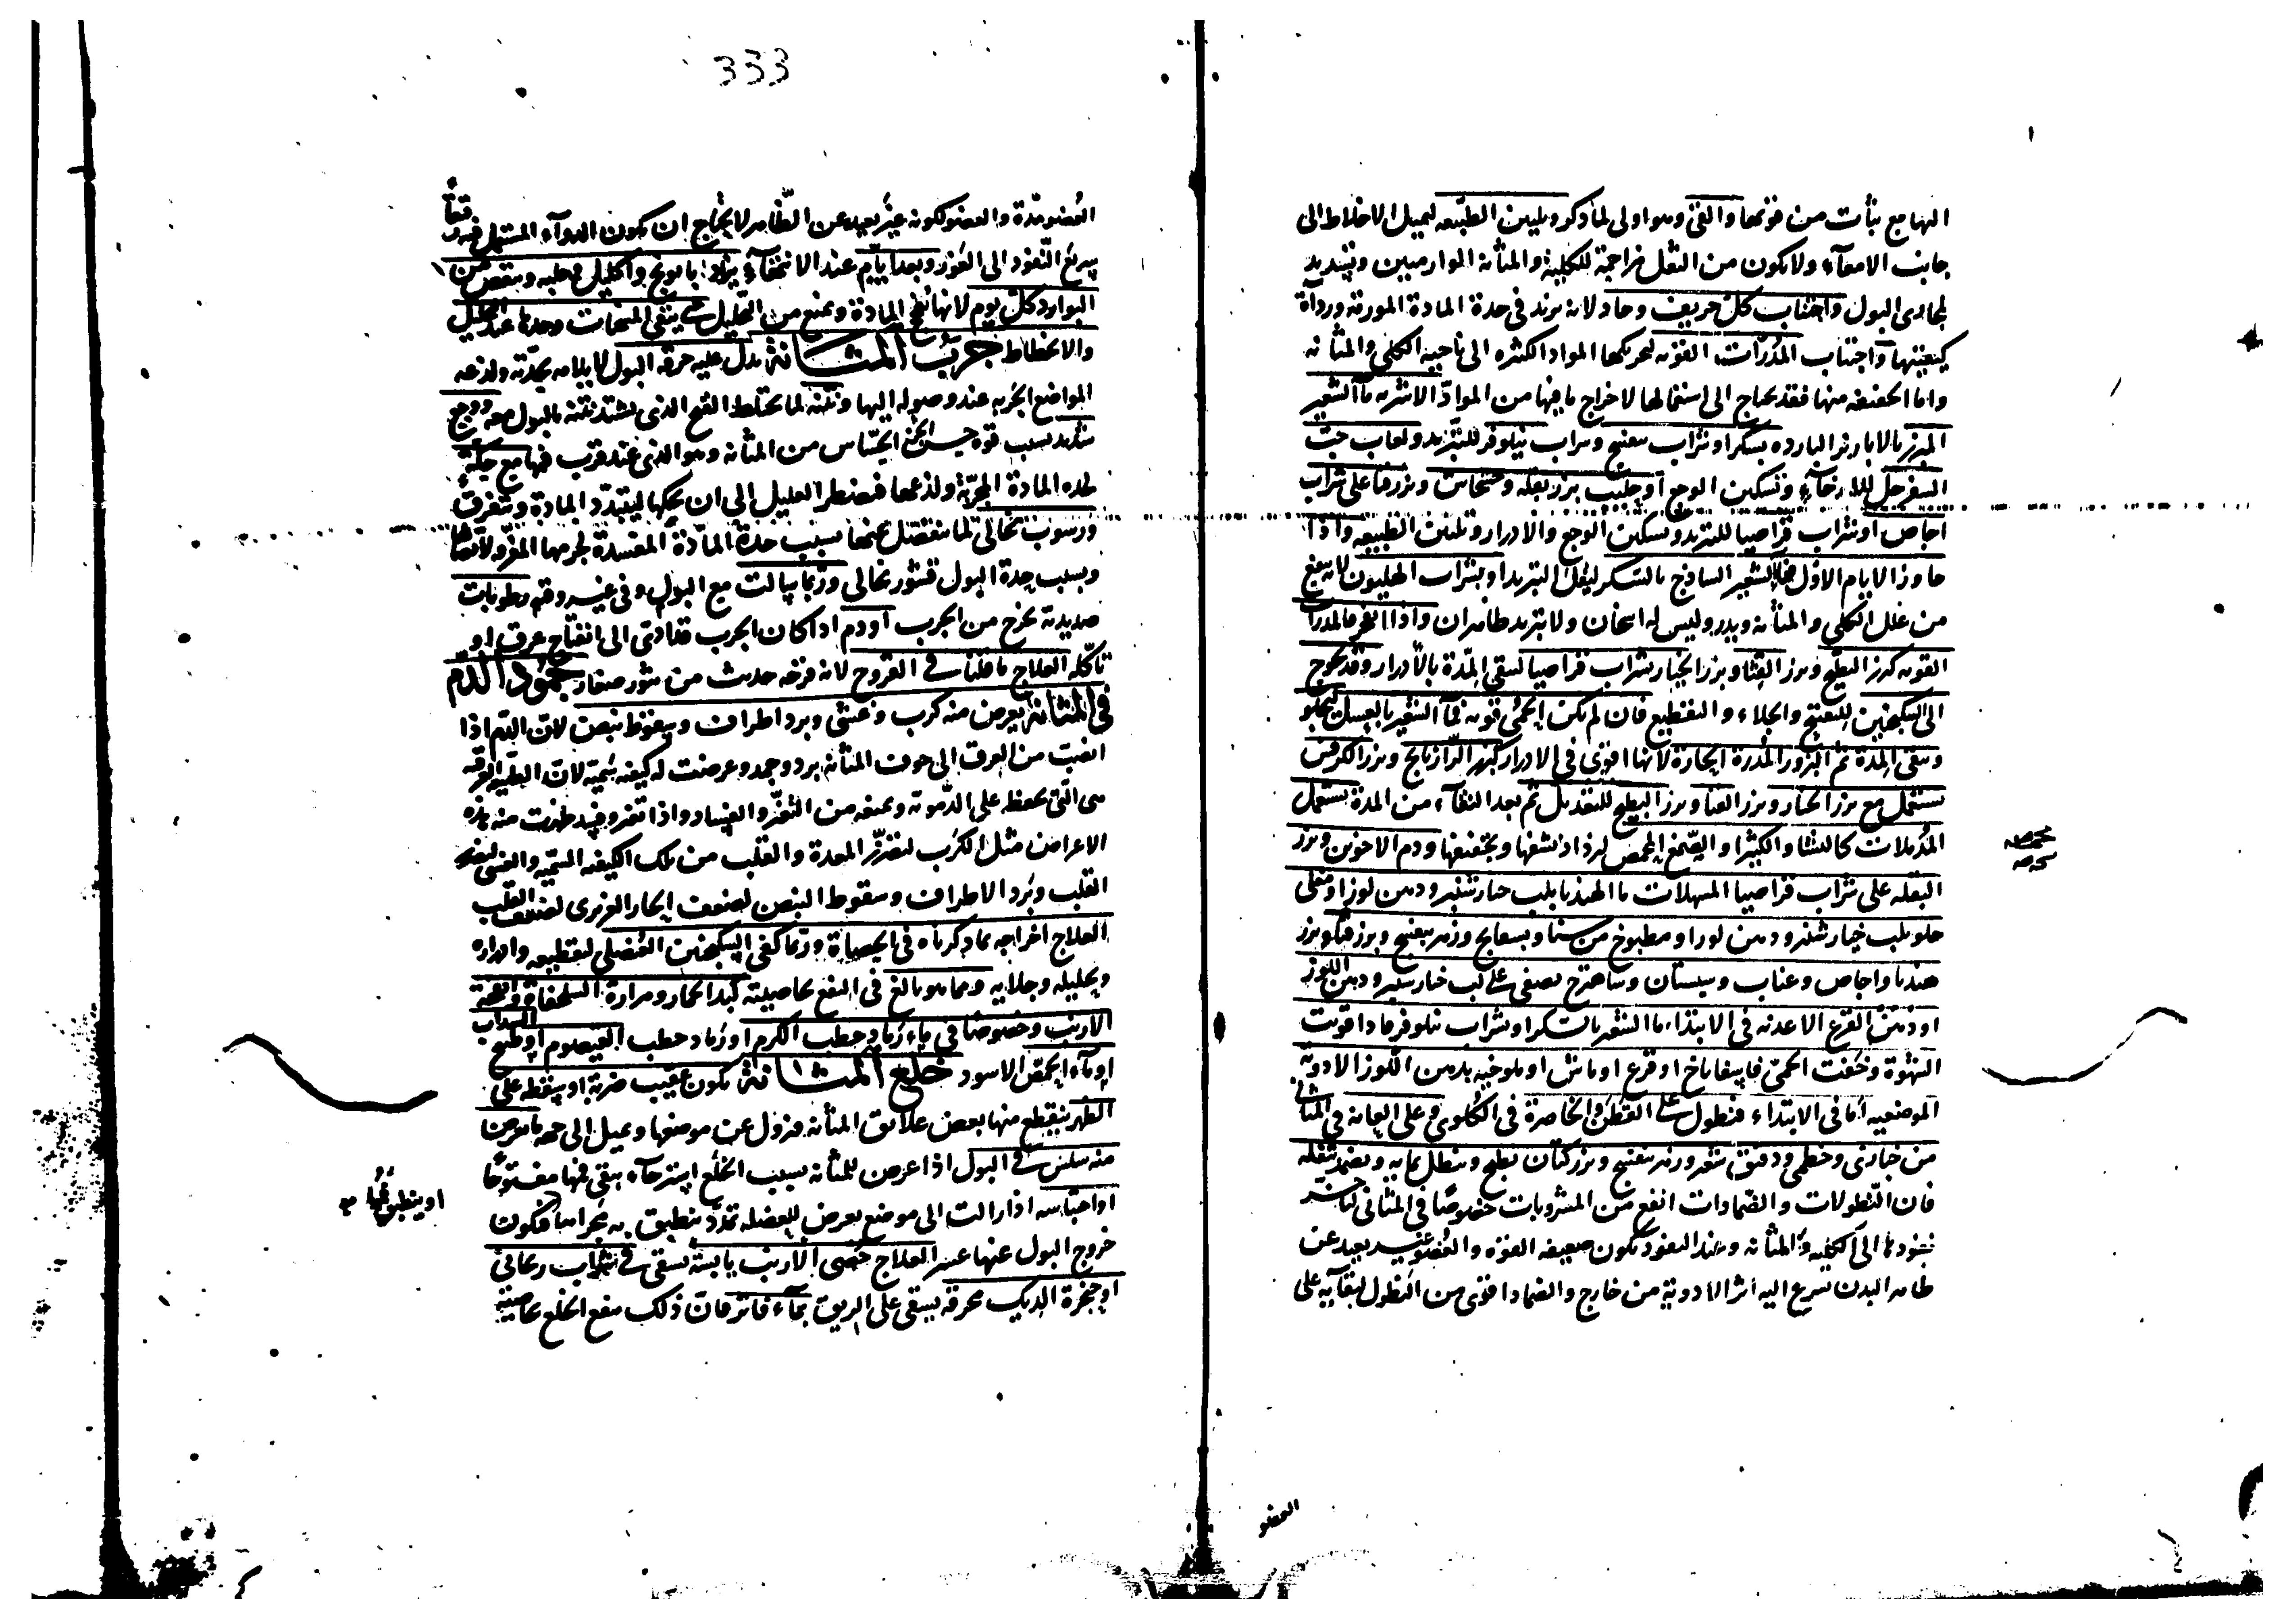 333
اليها مع ثبات من قوتها والقئ وهو اولى لما ذكر وتليين الطبيعه لميل الاخلاط الى
جانب الامعآء ولا يكون من الثفل مزاحمة للكلية والمثانة الوارمتين وتسديد
لمجارى البول واجتناب كل حريف وحاد لانه يزيد فى حدة المادة المورمة ورداة
كيفيتها واجتناب المدرات القويه لتحريكها المواد الكثيره الى ناحية الكلى والمثانه
واما الخفيفه منها فقد يحتاج الى استعمالها لاخراج ما فيها من المواد الاشربه مآ الشعير
المبزر بالابازير البارده بسكر او شراب بنفسج وشراب نيلوفر للتبريد ولعاب حب
السفرجل للارخآء وتسكين الوجع او حليب بزر بقله وخشخاش وبزرها على شراب
اجاص او شراب قراصيا للتبريد وتسكين الوجع والادرار وتليين الطبيعه واذا
جاوز الايام الاول الشعير الساذج بالسكر ليقل التبريد او بشراب الهليون لانه ينفع
من علل الكلى والمثانه ويدر وليس له اسخان ولا تبريد ظاهران واذا انفجر فالمدرات
القويه كبزر البطيخ وبزر القثا وبزر الخيار بشراب قراصيا لينقى المدة بالادرار وقد يحوج
الى السكنجبين للتفتيح والجلاء والتقطيع فان لم تكن الحمى قويه فمآ الشعير بالعسل ليجلو
وينقى المدة ثم البزور المدرة الحارة لانها اقوى فى الادرار كبزر الرازيانج وبزر الكرفس
يستعمل مع بزر الخيار وبزر القثا وبزر البطيخ للتعديل ثم بعد النقآء من المدة يستعمل
المدملات كالنشا والكثيرا والصمغ المحمص لزداد نشفها وتجفيفها ودم الاخوين وبزر
البقله على شراب قراصيا المسهلات ما الهندبا بلب خيار شنبر ودهن لوز او مغلى
حلو بلب خيار شنبر ودهن لوز او مطبوخ من سنا وبسفايج وزهر بنفسج وبزر وبزر
هندبا واجاص وعناب وسبستان وشاهترج يصفى على لب خيار شنبر ودهن اللوز
او دهن القرع الاغديه فى الابتداء ما الشعير بالسكر او شراب نيلوفر فاذا قويت
الشهوة وخفت الحمى فاسفاناخ او قرع او ماش او ملوخيه بدهن اللوز الادوية
الموضعيه اما فى الابتداء فنطول على القطن والخاصرة فى الكلوى وعلى العانه فى المثانى
من خبازى وخطمى ودقيق شعير وزهر بنفسج وبزر كتان يطبخ وينطل بمايه ويضمد بثفله
فان النطولات والضمادات انفع من المشروبات خصوصا فى المثانى لتاخر
نفوذها الى الكليه والمثانه وعند النفوذ تكون ضعيفه القوه والعضو غير بعيد عن
ظاهر البدن يسرع اليه اثر الادوية من خارج والضماد اقوى من النطول لبقآيه على
محمصه
العضو
العضو مدة والعضو لكونه غير بعيد عن الظاهر لا يحتاج ان يكون الدوآء المستعمل فيه
سريع النفوذ الى الغور وبعد ايام عند الانتهآء يزاد بابونج واكليل وحلبه وينقص من
البوارد كل يوم لانها تفجج المادة وتمنع من التحليل حتى يبقى المنضجات وحدها عند التحليل
والانحطاط جرب المثانة يدل عليه حرقه البول لايلامه بحدته ولذعه
المواضع الجربه عند وصوله اليها ونتنه لما يختلط القيح الذى يشتد نتنه بالبول معه ووجع
شديد بسبب قوة حس الحساس من المثانه وهو الذى عند قرب فمها مع حكة
لحده المادة المجربة ولذعها فيضطر العليل الى ان يحكها ليتبدد المادة وتتفرق
ورسوب نخالى لما ينفصل عنها بسبب حدة المادة المفسدة لجرمها
وبسبب حدة البول قشور نخالى وربما سالت مع البول وفى غير وقته رطوبات
صديدية تخرج من الجرب او دم اذا كان الجرب قد ادى الى انفتاح عرق او
تآكله العلاج ما قلنا فى القروح لانه قرحه حدثت من بثور صغار جمود الدم
فى المثانة يعرض منه كرب وغشى وبرد اطراف وسقوط نبض لان الدم اذا
انصب من العرق الى جوف المثانه برد وجمد وعرضت له كيفيه سمية لان الطبيعه
هى التى تحفظه على الدموية وتمنعه من التغير والفساد واذا تغير وفسد ظهرت منه هذه
الاعراض مثل الكرب لتضرر المعدة والقلب من تلك الكيفيه السميه والغشى لضعف
القلب وبرد الاطراف وسقوط النبض لضعف الحار الغريزى لضعف القلب
العلاج اخراجه بما ذكرناه فى الحصاة وربما كفى السكنجبين العنصلى لتقطيعه وادراره
وتحليله وجلايه ومما هو بالغ فى النفع بخاصيته كبد الحمار ومرارة السلحفاة وانفحة
الارنب وخصوصا فى ماء رماد حطب الكرم او رماد حطب القيصوم او طبيخ السداب
او مآء الحمص الاسود خلع المثانة يكون عقيب ضربة او سقطه على
الظهر ينقطع منها بعض علايق المثانه فتزول عن موضعها وتميل الى جهه ما يعرض
منه سلس فى البول اذا عرض للمثانه بسبب الخلع استرخآء يبقى فمها مفتوحا
او احتباسه اذا زالت الى موضع يعرض للعضله تمدد ينطبق به مجراها فيكون
خروج البول عنها عسر العلاج خصى الارنب يابسة يسقى فى شراب ريحانى
او حنجرة الديك محرقه يسقى على الريق بمآء فاتر فان ذلك ينفع الخلع بخاصية